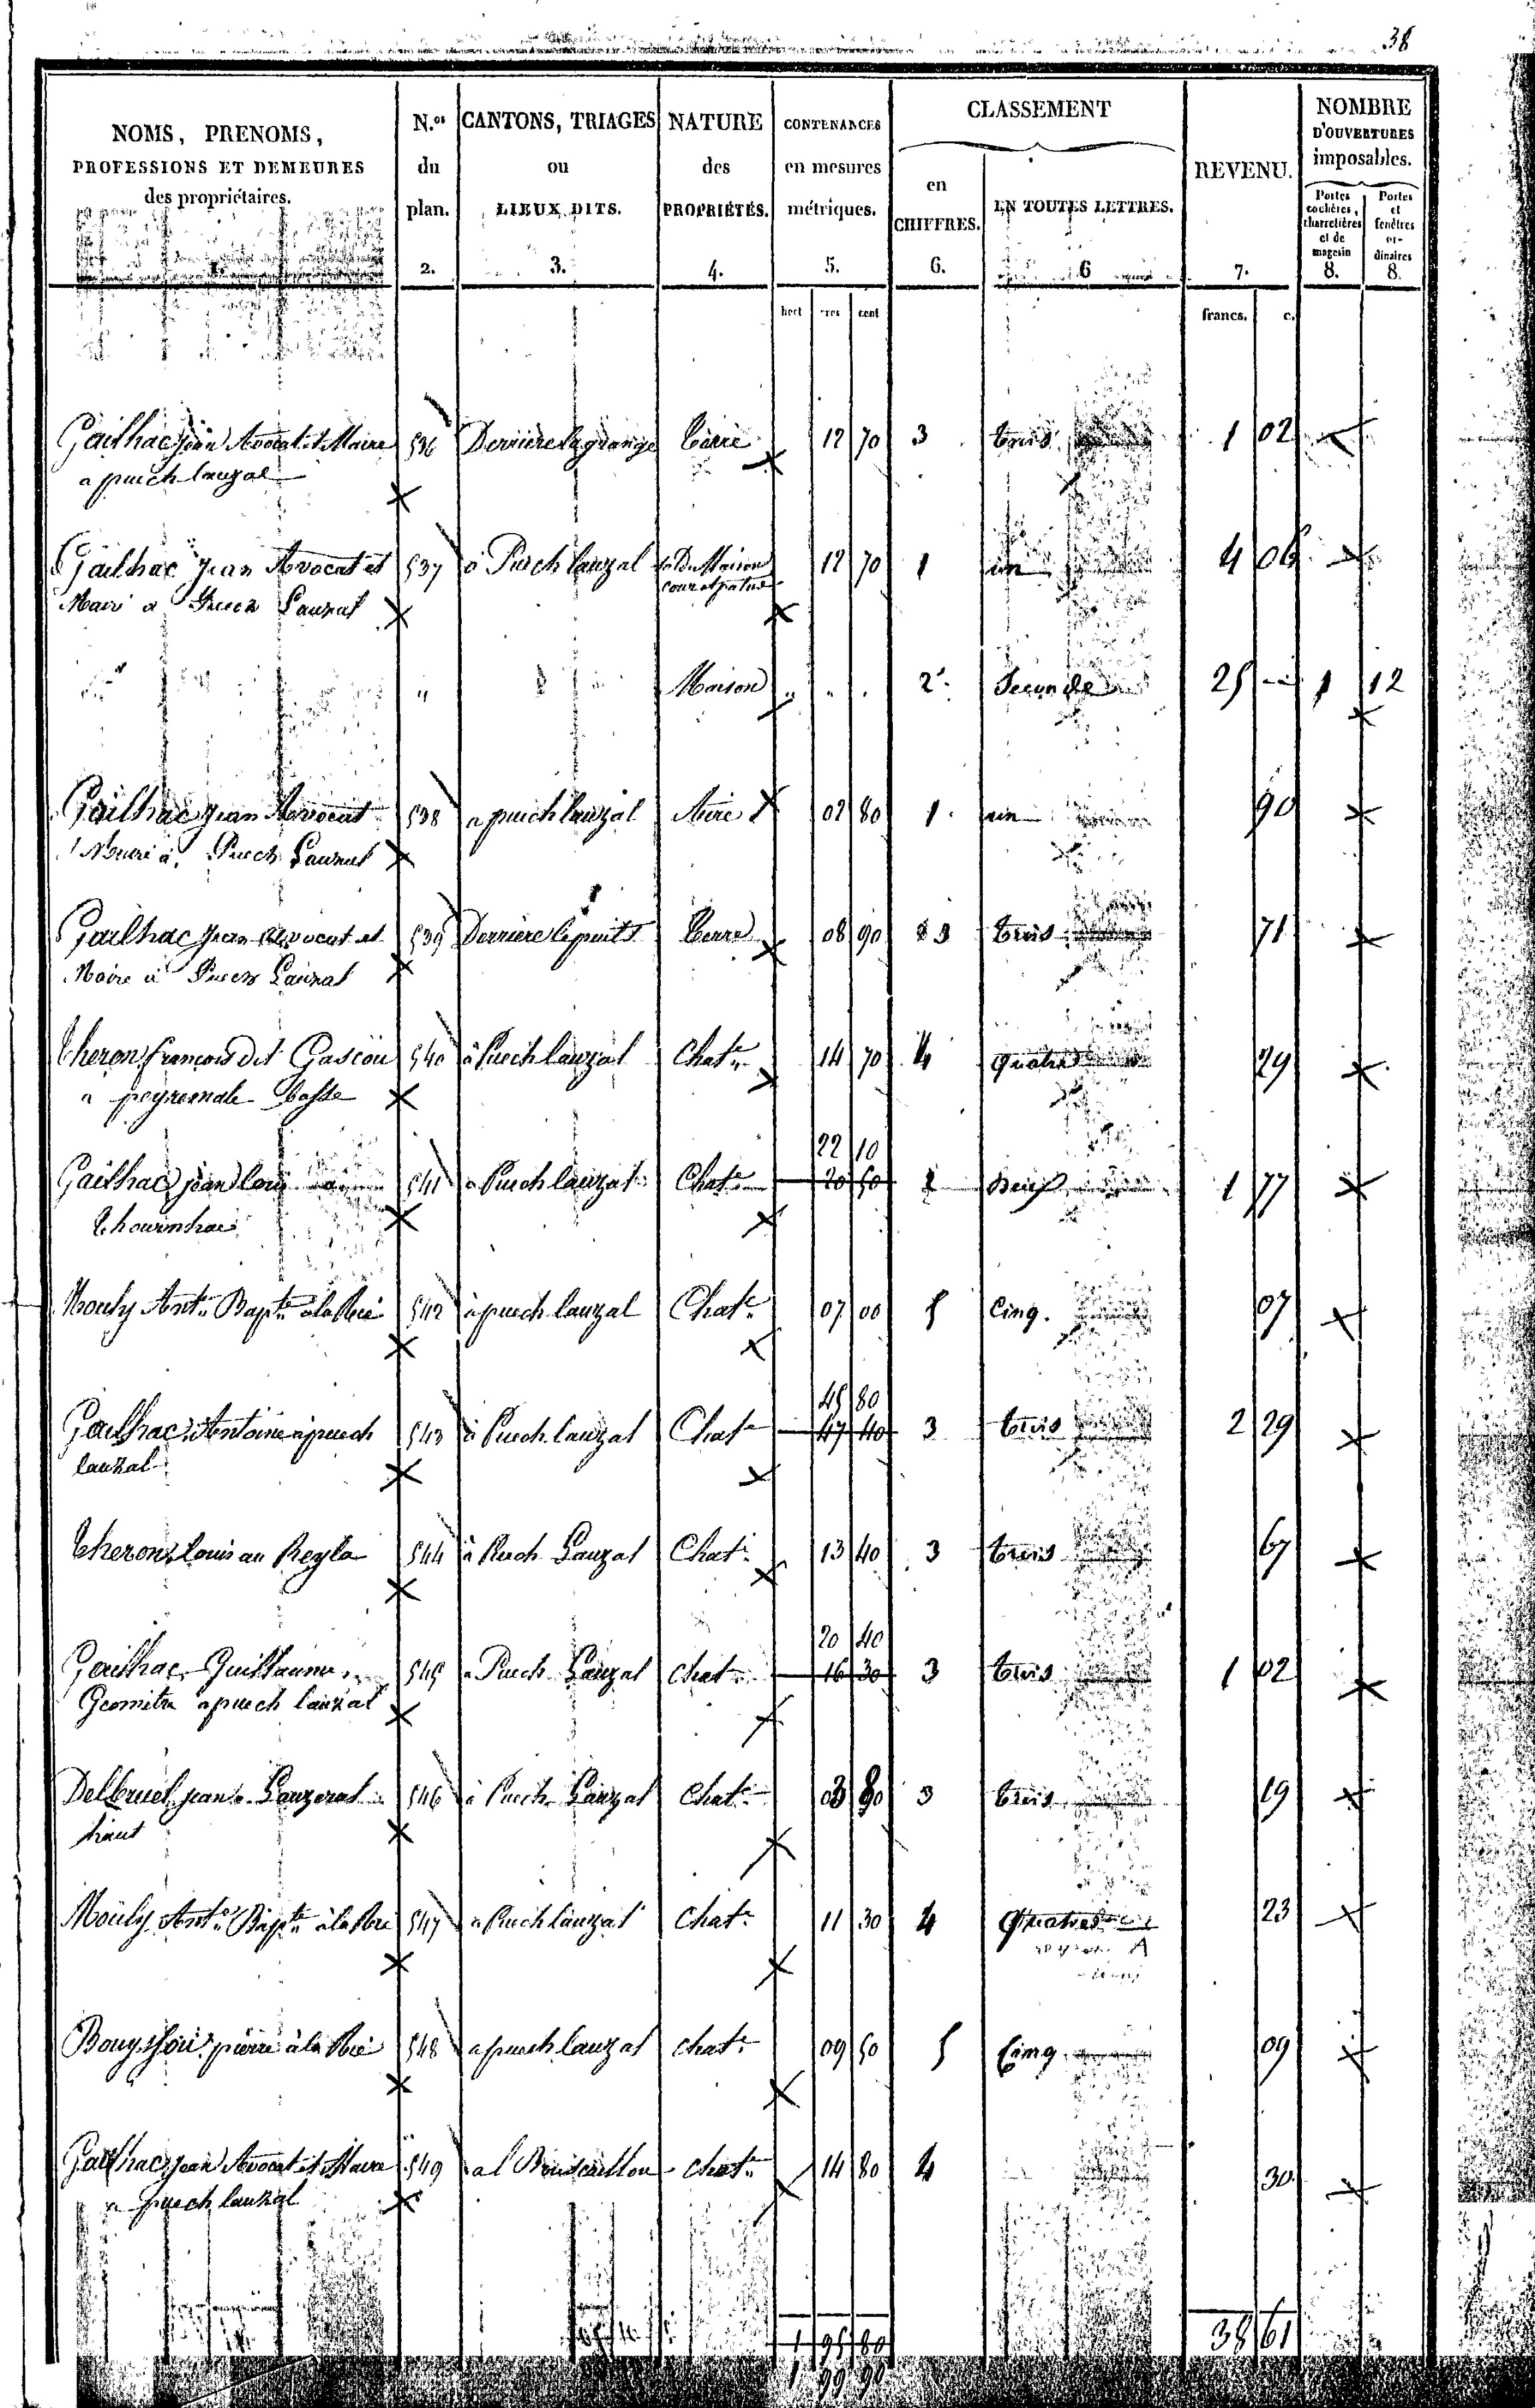 38
NOMS, PRENOMS, PROFESSIONS ET DEMEURES des propriétaires. 1.
N.os du plan. 2.
CANTONS, TRIAGES ou LIEUX DITS. 3.
NATURE des PROPRIÉTÉS. 4.
CONTENANCES en mesures métriques. 5.
CLASSEMENT
en CHIFFRES. 6.
EN TOUTES LETTRES. 6
REVENU. 7.
NOMBRE D'OUVERTURES imposables.
Portes cochères, charretières et de magasin 8.
Portes et fenêtres ordinaires 8.
hect ares cent francs. c.
Gailhac jean Avocat et Maire 536 Derriere la grange terre 12 70 3 trois 1 02
a puech lauzal
Gailhac Jean Avocat et 537 à Puech lauzal Maison 12 70 1 un 4 06
Maire a Puech Lauzal cour et patus
" Maison " " . 2e Seconde 25 — 1 12
Gailhac Jean Avocat 538 a puech lauzal Aire 02 80 1 un 90
Maire à Puech Lauzal
Gailhac Jean Avocat et 539 Derriere le puits terre 08 90 3 trois 71
Maire à Puech Lauzal
Theron francois dit Gascou 540 à Puech lauzal Chate 14 70 4 quatre 29
a peyremale basse
22 10
Gailhac jean louis 541 a Puech lauzal Chate 20 50 2 Deux 1 77
Mouly Ante Bapte à la Rei 542 à puech lauzal Chate 07 00 5 Cinq. 07
45 80
Gailhac Antoine a puech 543 à Puech lauzal Chate 47 40 3 trois 2 29
lauzal
Theron Louis au Reyla 544 à Puech Lauzal Chate 13 40 3 trois 67
20 40
Gailhac Guillaume 545 a Puech Lauzal chate 16 30 3 trois 1 02
Geometre a puech lauzal
Delbruel jean a Lauzeral 546 à Puech Lauzal Chate 03 80 3 trois 19
haut
Mouly Ante Bapte à la Rei 547 a Puech lauzal chate 11 30 4 Quatre 23
pierre à la Rei 548 a puech lauzal chate 09 50 5 Cinq 09
Gailhac jean Avocat et Maire 549 al chate 14 80 4 30
a puech lauzal
1 95 80 38 61
1 99 90